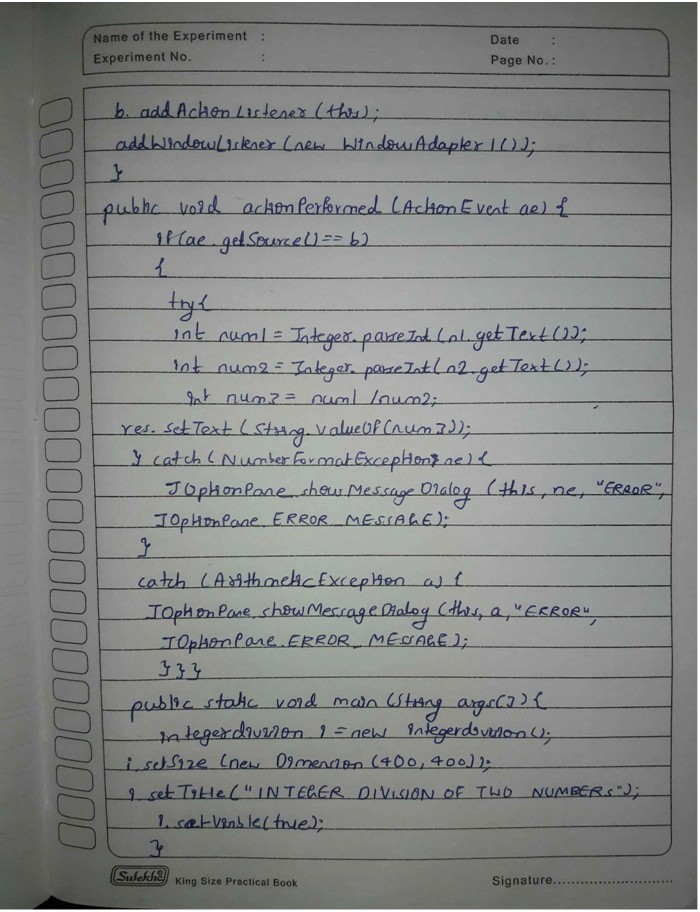 Name of the Experiment :
Date :
Experiment No. :
Page No. :
b. addActionListener (this);
addWindowListener (new WindowAdapter1());
}
public void actionPerformed (ActionEvent ae) {
if(ae.getSource()== b)
{
try{
int num1 = Integer.parseInt (n1.getText());
int num2 = Integer.parseInt(n2.getText());
int num3 = num1 /num2;
res.setText (String.valueOf(num3));
} catch (NumberFormatException ne) {
JOptionPane.showMessageDialog (this, ne, "ERROR",
JOptionPane.ERROR_MESSAGE);
}
catch (ArithmeticException a) {
JOptionPane.showMessageDialog (this, a, "ERROR",
JOptionPane.ERROR_MESSAGE);
}}}
public static void main (String args[]) {
integerdivision i = new integerdivision();
i.setSize (new Dimension (400, 400));
i.setTitle ("INTEGER DIVISION OF TWO NUMBERS");
i.setVisible(true);
}
Sulekha King Size Practical Book
Signature............................